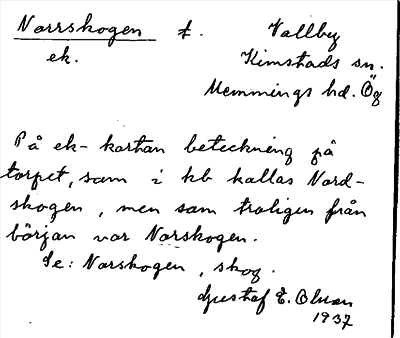 Norrskogen t. Vallby
ek. Kimstads sn.
Memmings hd. Ög
På ek-kartan beteckning på
torpet, som i kb kallas Nord-
skogen, men som troligen från
början var Norskogen.
Se: Norskogen, skog.
Gustaf E. Olsson
1937